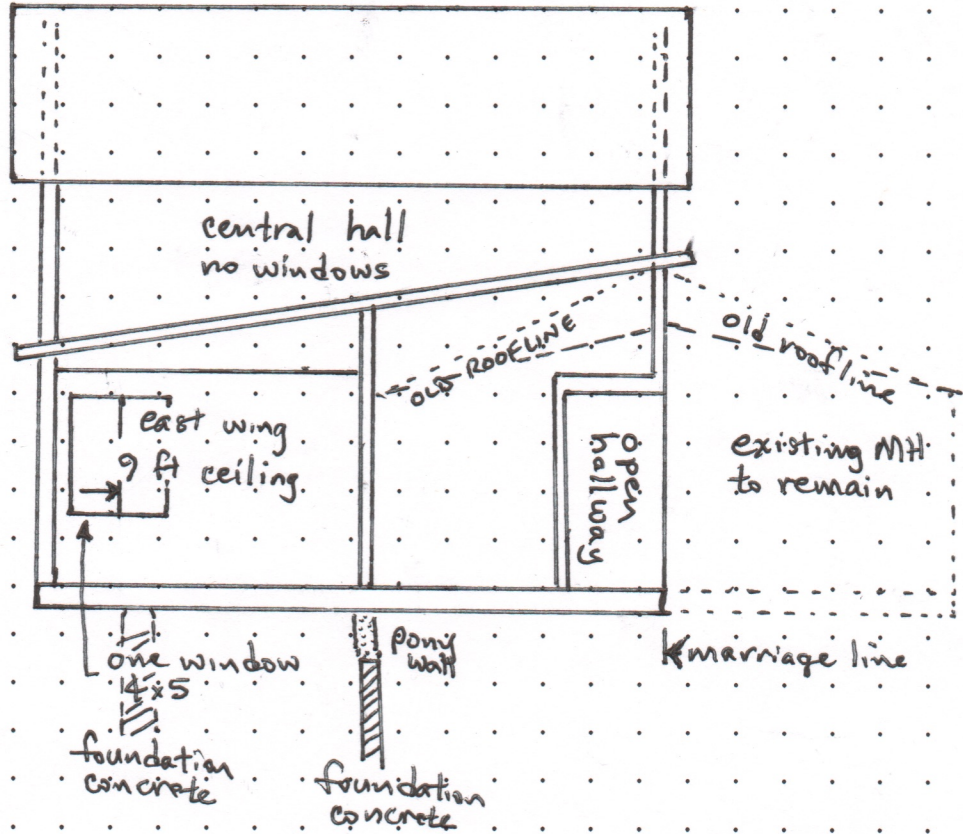 central hall
no windows
OLD ROOFLINE
old roofline
east wing
9 ft ceiling
open
hallway
existing MH
to remain
pony
wall
marriage line
one window
4x5
foundation
concrete
foundation
concrete